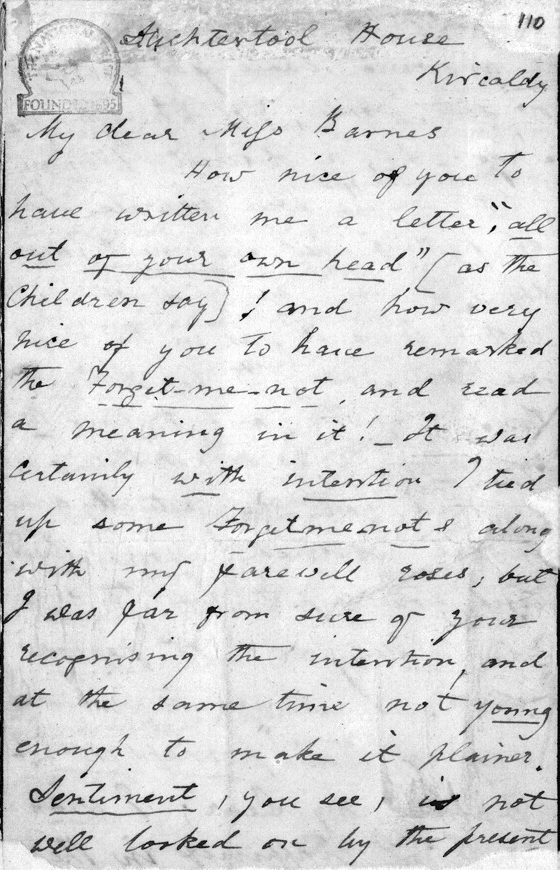 110
THE NATIONAL TRUST
FOUNDED 1895
Auchtertool House
Kircaldy
My dear Miss Barnes
How nice of you to
have written me a letter, "all
out of your own head" (as the
Children say)! and how very
nice of you to have remarked
the Forget-me-not, and read
a meaning in it! _ It was
certainly with intention I tied
up some Forgetmenots along
with my farewell roses, but
I was far from sure of your
recognising the intention, and
at the same time not young
enough to make it plainer.
Sentiment, you see, is not
well looked on by the present